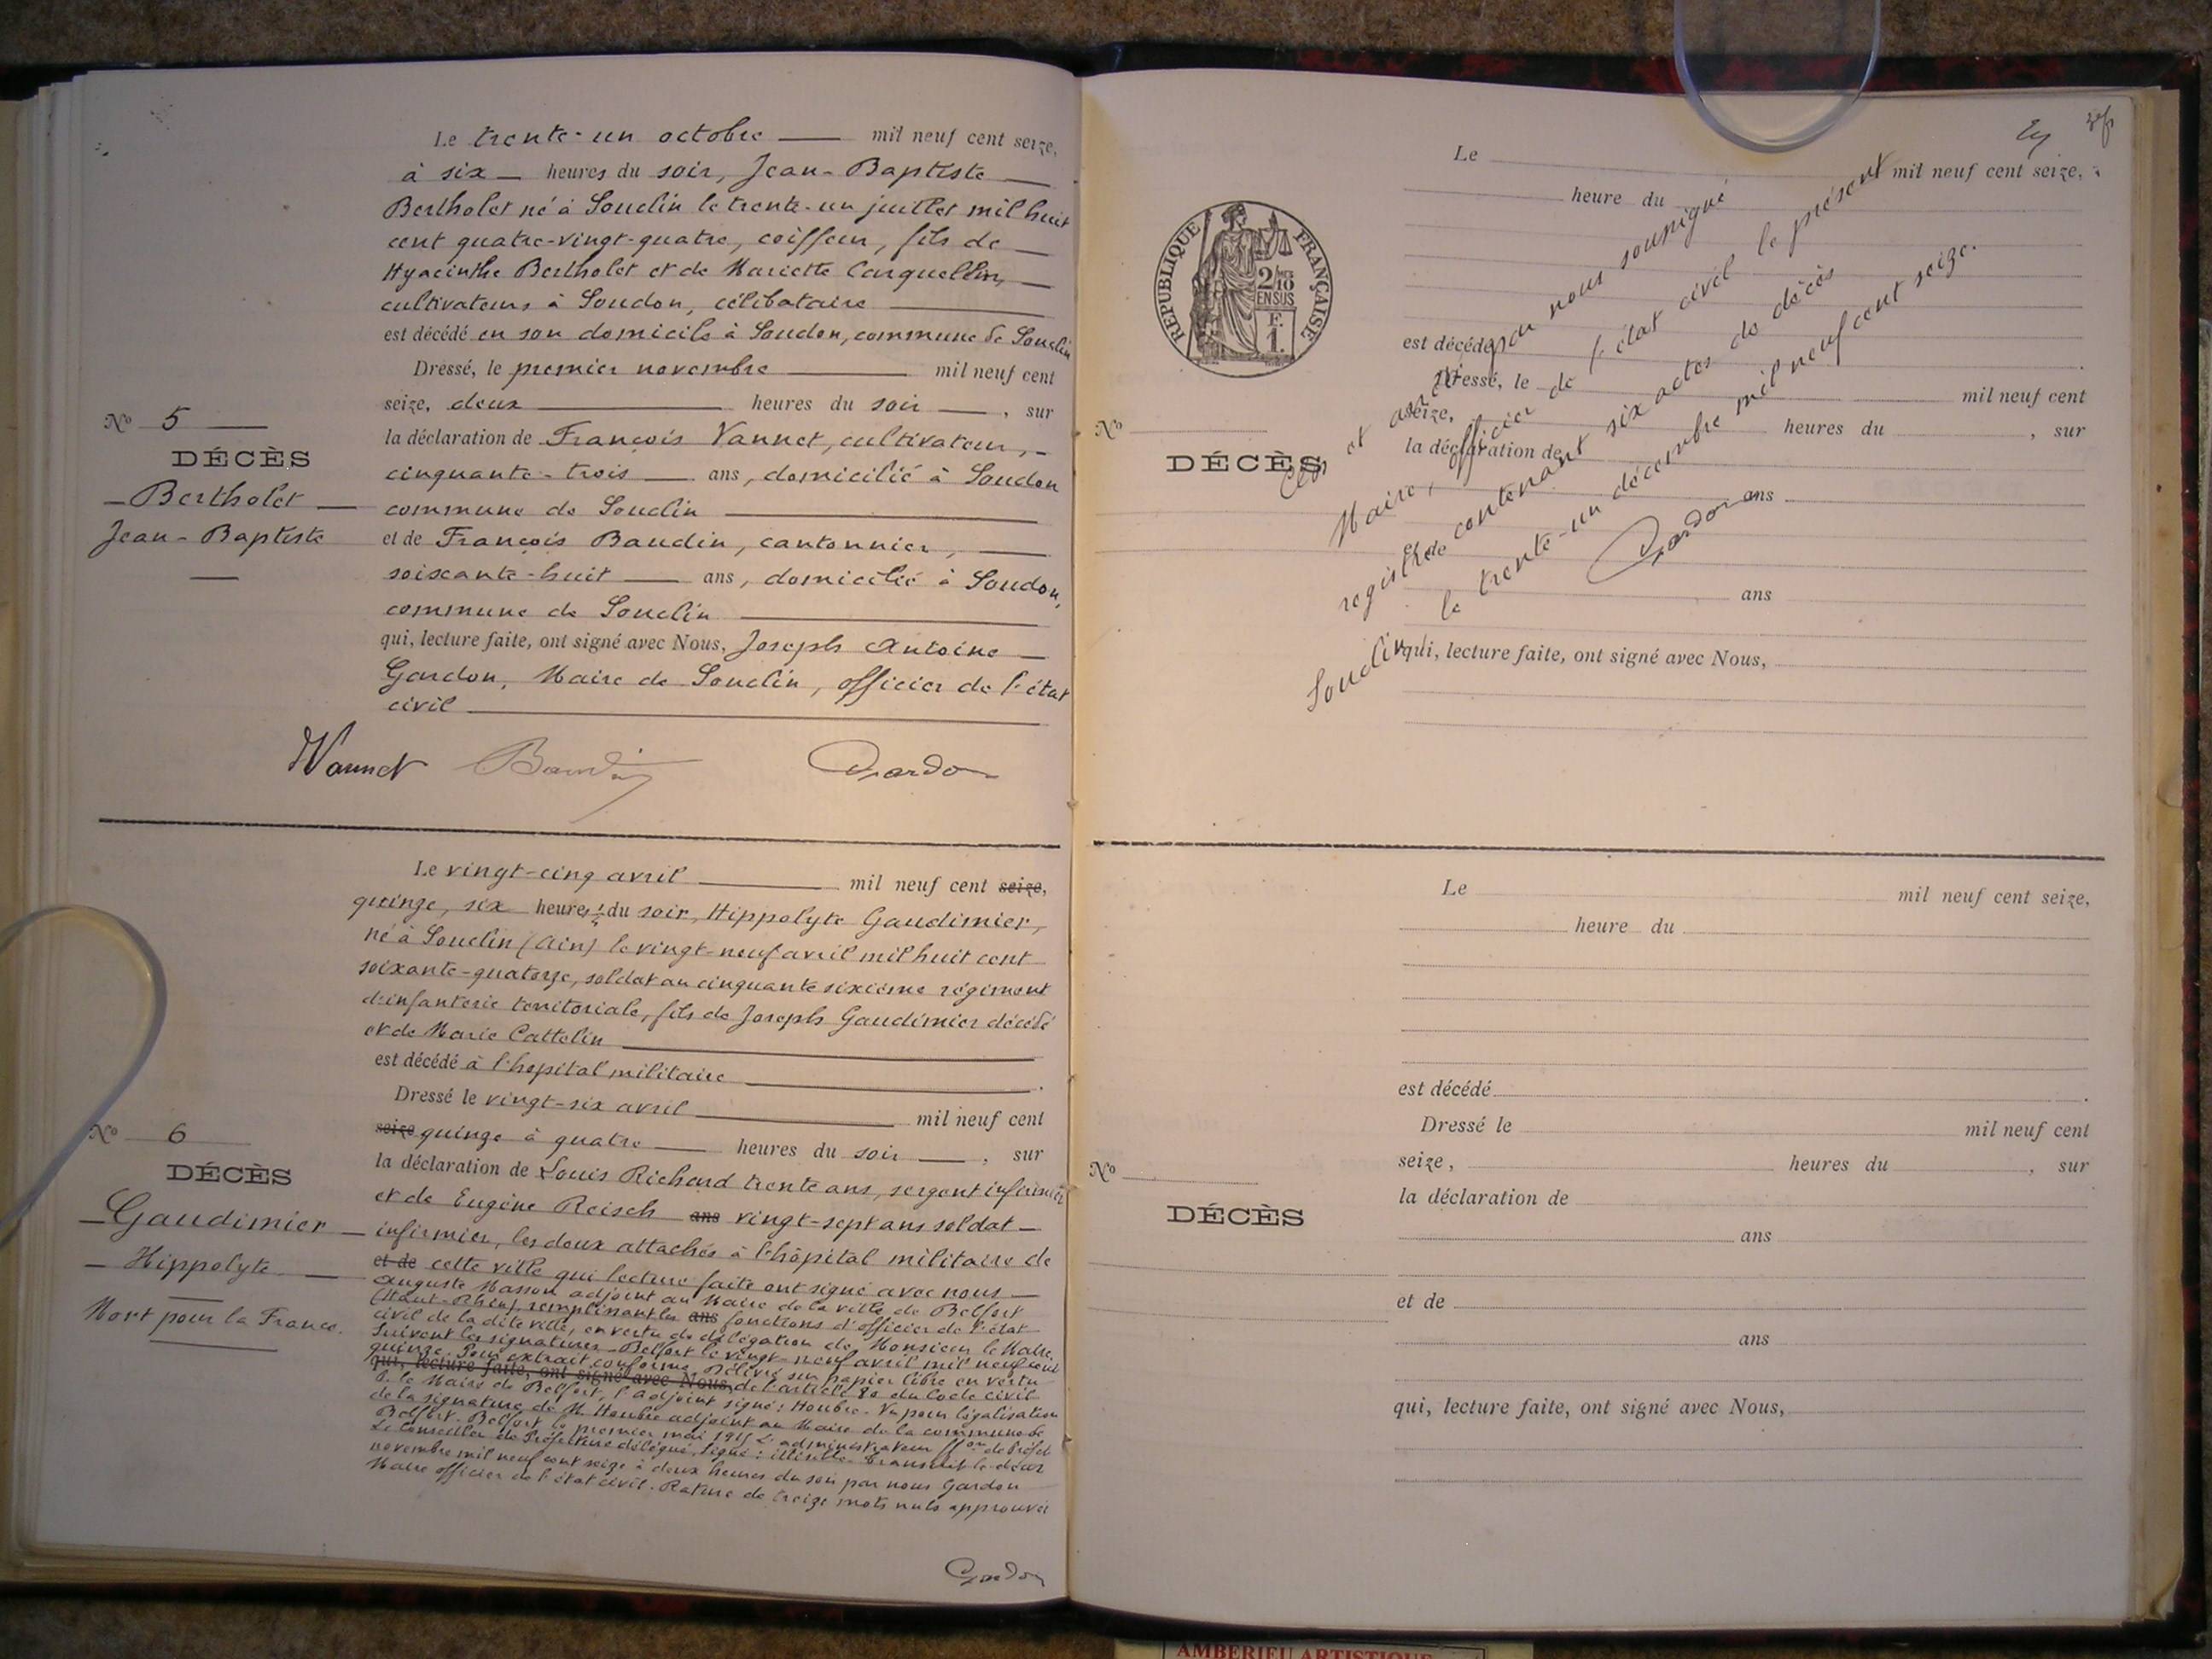 Le trente-un octobre mil neuf cent seize,
à six heures du soir, Jean-Baptiste
Bertholet né à Souclin le trente-un juillet mil huit
cent quatre-vingt-quatre, coiffeur, fils de
Hyacinthe Bertholet et de Mariette
cultivateurs à Soudon, célibataire
est décédé en son domicile à Soudon, commune de Souclin
Dressé, le premier novembre mil neuf cent
seize, deux heures du soir, sur
la déclaration de François Vannet, cultivateur,
cinquante-trois ans, domicilié à Soudon
commune de Souclin
et de François Baudin, cantonnier,
soixante-huit ans, domicilié à Soudon,
commune de Souclin
qui, lecture faite, ont signé avec Nous, Joseph Antoine
Gardon, Maire de Souclin, officier de l'état
civil
Vannet Baudin Gardon
N° 5
DÉCÈS
Bertholet
Jean-Baptiste
Le vingt-cinq avril mil neuf cent seize,
quinze, six heures ½ du soir, Hippolyte Gaudimier,
né à Souclin (Ain) le vingt-neuf avril mil huit cent
soixante-quatorze, soldat au cinquante sixième régiment
d'infanterie territoriale, fils de Joseph Gaudimier décédé
et de Marie Cattelin
est décédé à l'hopital militaire.
Dressé le vingt-six avril mil neuf cent
seize quinze à quatre heures du soir, sur
la déclaration de Louis Richard trente ans, sergent infirmier
et de Eugène Reisch ans vingt-sept ans soldat
infirmier, les deux attachés à l'hôpital militaire de
et de cette ville qui lecture faite ont signé avec nous
Auguste Masson adjoint au Maire de la ville de Belfort
(Haut-Rhin) remplissant les ans fonctions d'officier de l'état
civil de la dite ville, en vertu de délégation de Monsieur le Maire.
Suivent les signatures - Belfort le vingt-neuf avril mil neuf cent
quinze. Pour extrait conforme Délivré sur papier libre en vertu
qui, lecture faite, ont signé avec Nous, de l'article 80 du Code civil
P. le Maire de Belfort, l'adjoint signé: Houbre - Vu pour légalisation
de la signature de M. Houbre adjoint au Maire de la commune de
Belfort. Belfort le premier mai 1915 L'administrateur ff on de Préfet
Le Conseiller de Préfecture délégué. Signé: illisible. Transcrit le deux
novembre mil neuf cent seize à deux heures du soir par nous Gardon
Maire officier de l'état civil. Rature de treize mots nuls approuvés
Gardon
N° 6
DÉCÈS
Gaudimier
Hippolyte
Mort pour la France.
Le mil neuf cent seize,
heure du
est décédé
Dressé, le mil neuf cent
seize, heures du, sur
la déclaration de
ans
et de
ans
qui, lecture faite, ont signé avec Nous,
RÉPUBLIQUE FRANÇAISE
2/10
EN SUS
F.
1.
N°
DÉCÈS
Clos et arrêté par nous soussigné
Maire, officier de l'état civil le présent
registre contenant six actes de décès
Souclin le trente-un décembre mil neuf cent seize.
Gardon
Le mil neuf cent seize,
heure du
est décédé.
Dressé le mil neuf cent
seize, heures du, sur
la déclaration de
ans
et de
ans
qui, lecture faite, ont signé avec Nous,
N°
DÉCÈS
AMBERIEU ARTISTIQUE